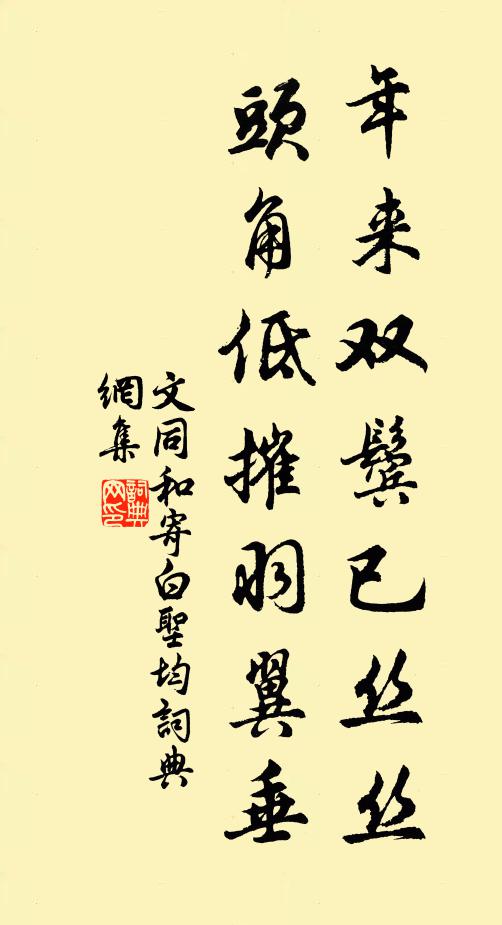 年来双鬓已丝丝
頭角低摧羽翼垂
文同和寄白聖均詞典
網集
詞典
网印